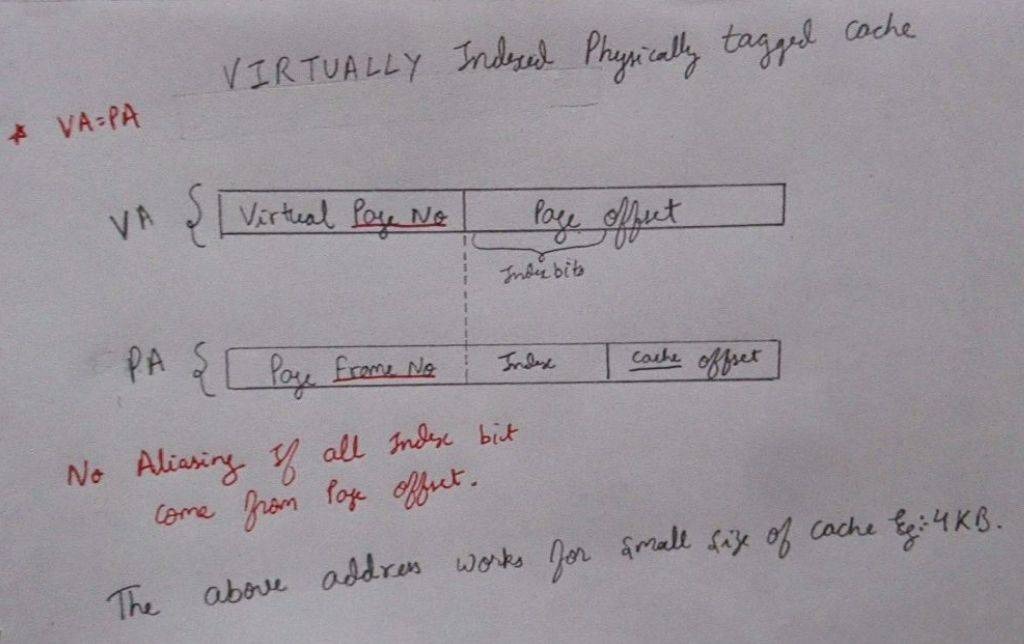 VIRTUALLY Indexed Physically tagged cache
* VA=PA
VA { Virtual Page No Page offset
Index bits
PA { Page Frame No Index cache offset
No Aliasing If all Index bit
come from Page offset.
The above address works for small size of cache Eg:- 4KB.